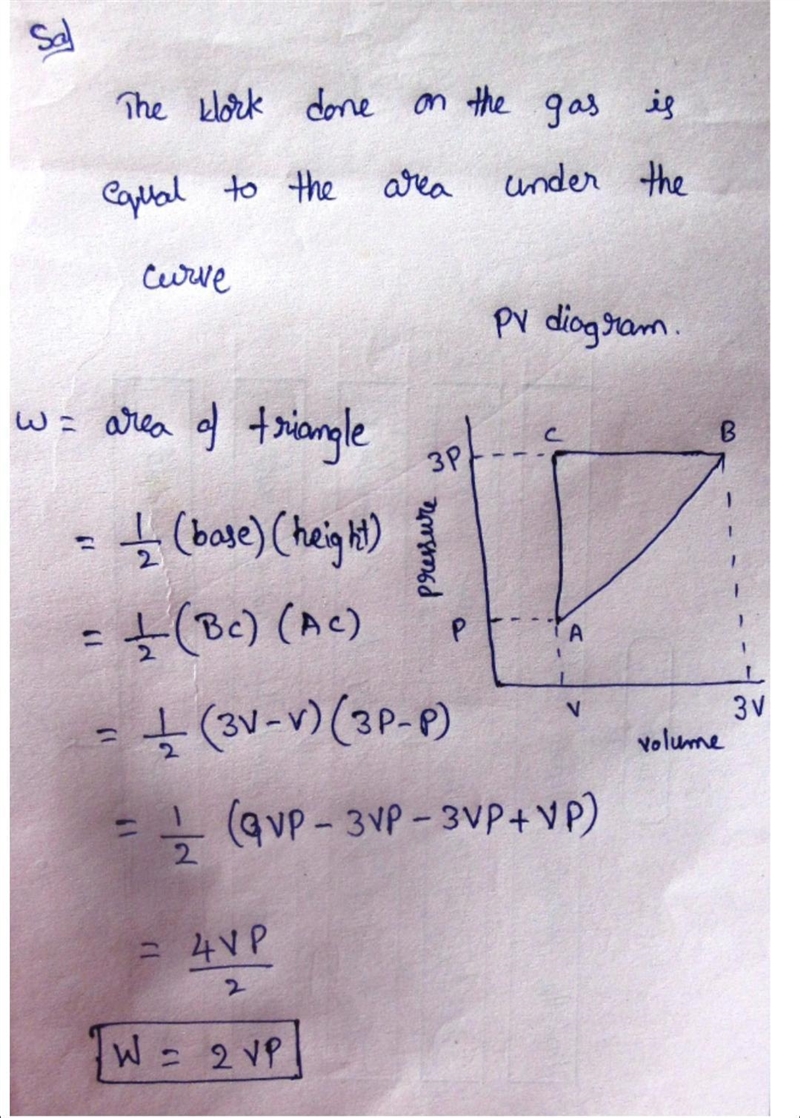 Sol
The Work done on the gas is
equal to the area under the
curve
PV diagram.
W = area of triangle
= 1/2 (base) (height)
= 1/2 (BC) (AC)
= 1/2 (3V-V) (3P-P)
= 1/2 (9VP - 3VP - 3VP + VP)
= 4VP/2
W = 2VP
C B
3P
pressure
P A
V 3V
volume